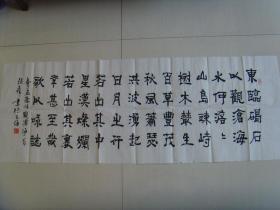 東臨碣石
以觀滄海
水何澹澹
山島竦峙
樹木叢生
百草豐茂
秋風蕭瑟
洪波湧起
日月之行
若出其中
星漢燦爛
若出其裏
幸甚至哉
歌以詠志